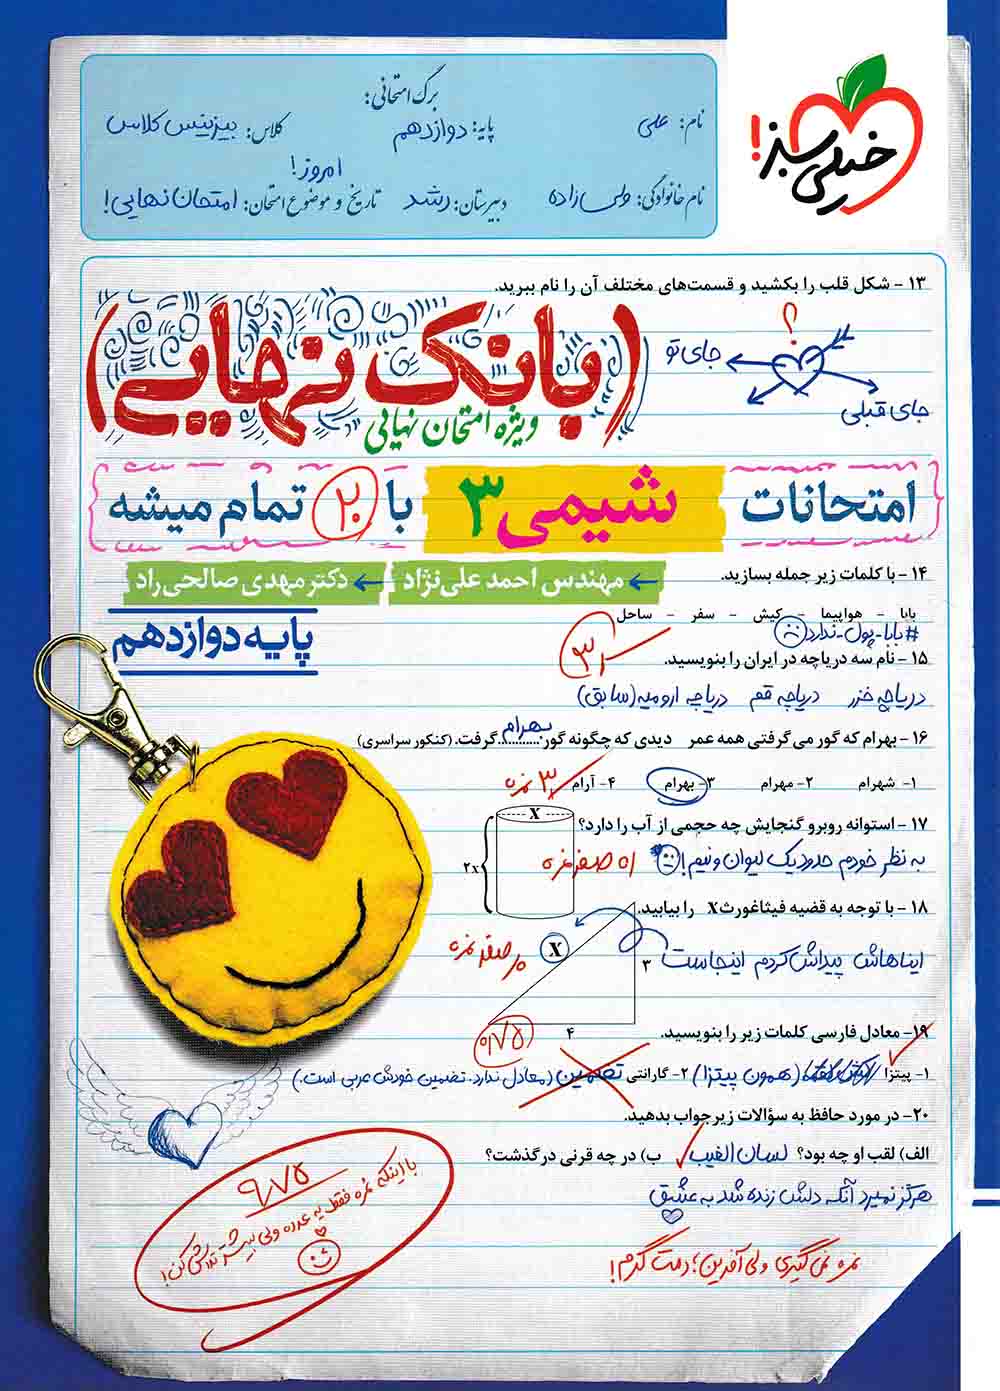 خیلی سبز!
برگ امتحانی:
نام: علی پایه: دوازدهم کلاس: بیزینس کلاس
امروز!
نام خانوادگی: ولی زاده دبیرستان: رشد تاریخ و موضوع امتحان: امتحان نهایی!
۱۳ - شکل قلب را بکشید و قسمت‌های مختلف آن را نام ببرید.
؟
جای تو
جای قبلی
(بانک نهایی)
ویژه امتحان نهایی
امتحانات شیمی ۳ با ۲۰ تمام میشه
۱۴ - با کلمات زیر جمله بسازید.
مهندس احمد علی‌نژاد دکتر مهدی صالحی‌راد
بابا - هواپیما - کیش - سفر - ساحل
#بابا-پول-ندارد
پایه دوازدهم
۱۵ - نام سه دریاچه در ایران را بنویسید.
دریاچه خزر دریاچه قم دریاچه ارومیه (سابق)
۱۶ - بهرام که گور می‌گرفتی همه عمر دیدی که چگونه گور بهرام گرفت. (کنکور سراسری)
۱- شهرام ۲- مهرام ۳- بهرام ۴- آرام
۳ نمره
۱۷ - استوانه روبرو گنجایش چه حجمی از آب را دارد؟
x
۲x
به نظر خودم حدود یک لیوان و نیم!
اه صفر نمره
۱۸ - با توجه به قضیه فیثاغورث x را بیابید.
ایناهاش پیداش کردم اینجاست
X
۳
۴
صفر نمره
۱۹- معادل فارسی کلمات زیر را بنویسید.
۰/۷۵
۱- پیتزا (همون پیتزا) ۲- گارانتی تضمین (معادل ندارد. تضمین خودش عربی است.)
۲۰- در مورد حافظ به سؤالات زیر جواب بدهید.
الف) لقب او چه بود؟ لسان الغیب ب) در چه قرنی درگذشت؟
هرگز نمیرد آنکه دلش زنده شد به عشق
نمره نمی‌گیری ولی آفرین؛ دمت گرم!
۹/۷۵
با اینکه نمره فقط یه عدده ولی بیشتر تلاش کن!